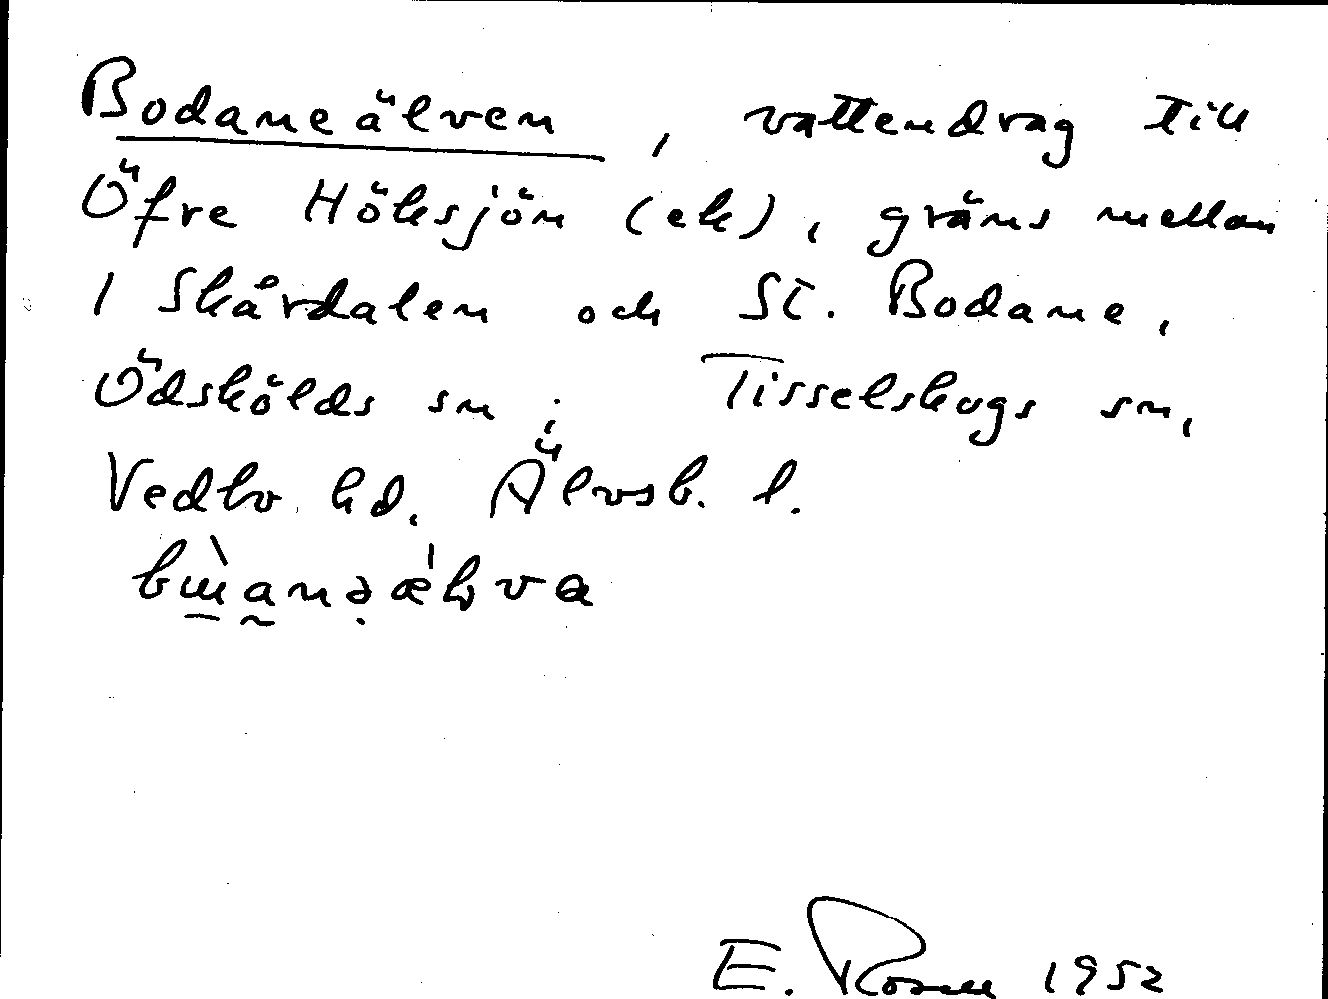 Bodaneälven, vattendrag till
Öfre Höksjön (ek), gräns mellan
1 Skårdalen och St. Bodane,
Ödskölds sn; Tisselskogs sn,
Vedbo hd. Älvsb. l.
E. Rosell 1952